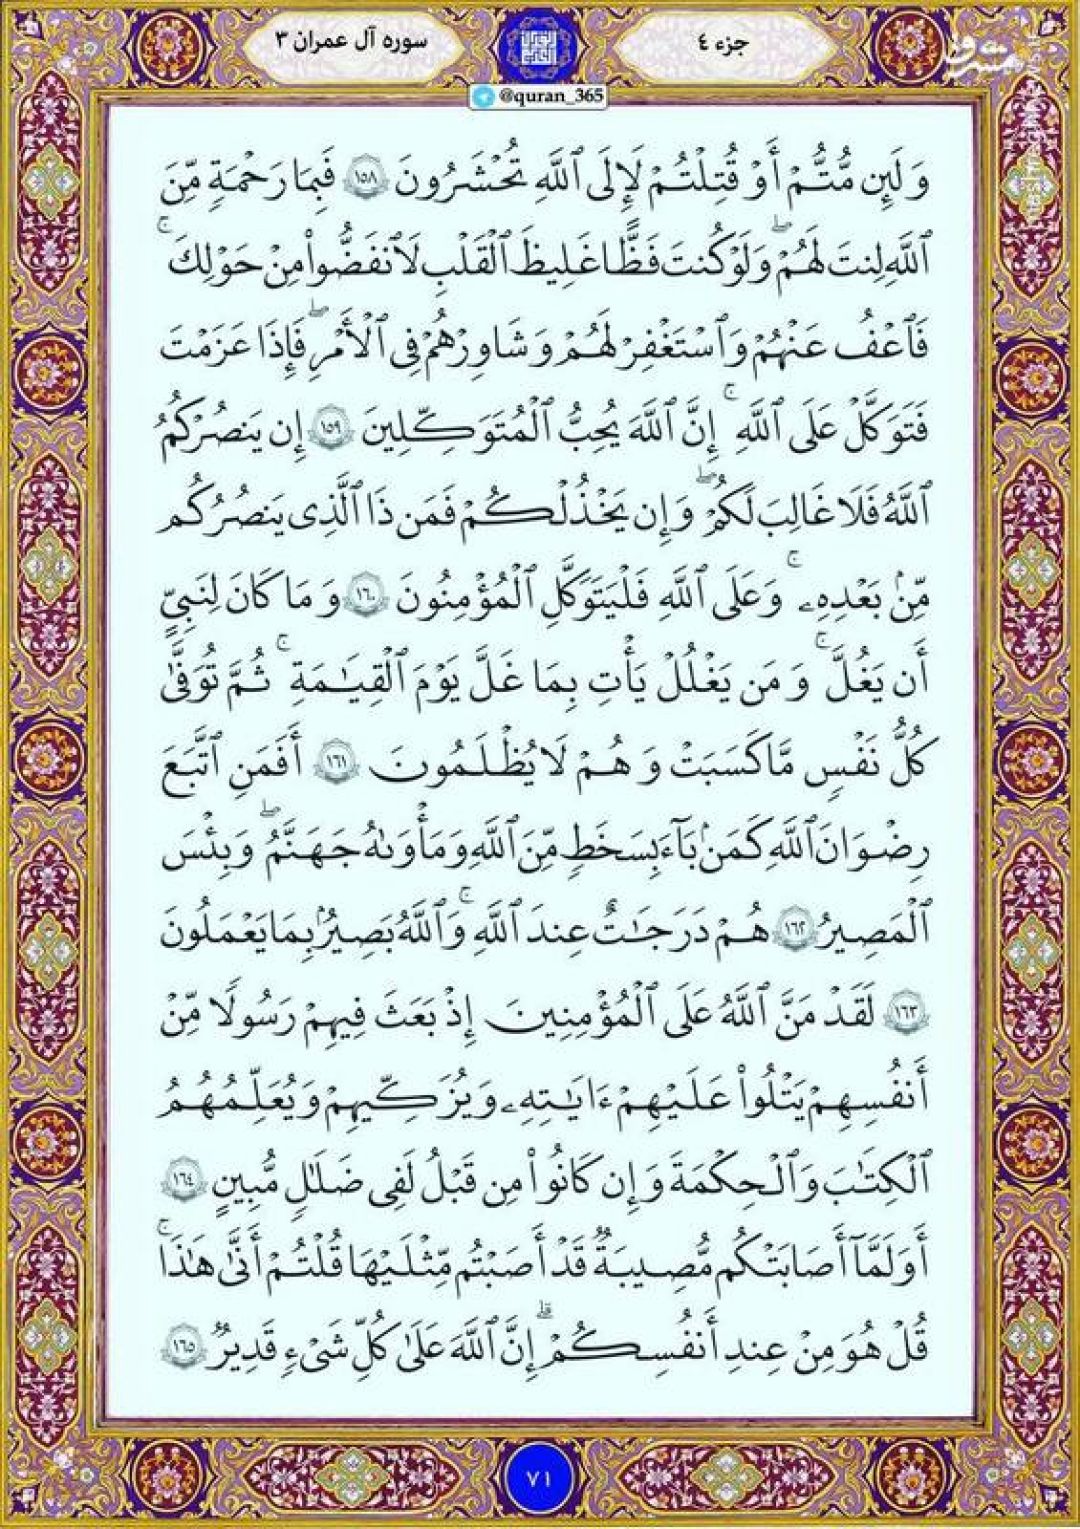 جزء ٤
سوره آل عمران ٣
@quran_365
وَلَئِن مُّتُّمْ أَوْ قُتِلْتُمْ لَإِلَى ٱللَّهِ تُحْشَرُونَ ١٥٨ فَبِمَا رَحْمَةٍ مِّنَ
ٱللَّهِ لِنتَ لَهُمْ ۖ وَلَوْ كُنتَ فَظًّا غَلِيظَ ٱلْقَلْبِ لَٱنفَضُّوا۟ مِنْ حَوْلِكَ ۖ
فَٱعْفُ عَنْهُمْ وَٱسْتَغْفِرْ لَهُمْ وَشَاوِرْهُمْ فِى ٱلْأَمْرِ ۖ فَإِذَا عَزَمْتَ
فَتَوَكَّلْ عَلَى ٱللَّهِ ۚ إِنَّ ٱللَّهَ يُحِبُّ ٱلْمُتَوَكِّلِينَ ١٥٩ إِن يَنصُرْكُمُ
ٱللَّهُ فَلَا غَالِبَ لَكُمْ ۖ وَإِن يَخْذُلْكُمْ فَمَن ذَا ٱلَّذِى يَنصُرُكُم
مِّنۢ بَعْدِهِۦ ۗ وَعَلَى ٱللَّهِ فَلْيَتَوَكَّلِ ٱلْمُؤْمِنُونَ ١٦٠ وَمَا كَانَ لِنَبِىٍّ
أَن يَغُلَّ ۚ وَمَن يَغْلُلْ يَأْتِ بِمَا غَلَّ يَوْمَ ٱلْقِيَـٰمَةِ ۚ ثُمَّ تُوَفَّىٰ
كُلُّ نَفْسٍ مَّا كَسَبَتْ وَهُمْ لَا يُظْلَمُونَ ١٦١ أَفَمَنِ ٱتَّبَعَ
رِضْوَانَ ٱللَّهِ كَمَنۢ بَآءَ بِسَخَطٍ مِّنَ ٱللَّهِ وَمَأْوَىٰهُ جَهَنَّمُ ۖ وَبِئْسَ
ٱلْمَصِيرُ ١٦٢ هُمْ دَرَجَـٰتٌ عِندَ ٱللَّهِ ۗ وَٱللَّهُ بَصِيرٌۢ بِمَا يَعْمَلُونَ
١٦٣ لَقَدْ مَنَّ ٱللَّهُ عَلَى ٱلْمُؤْمِنِينَ إِذْ بَعَثَ فِيهِمْ رَسُولًا مِّنْ
أَنفُسِهِمْ يَتْلُوا۟ عَلَيْهِمْ ءَايَـٰتِهِۦ وَيُزَكِّيهِمْ وَيُعَلِّمُهُمُ
ٱلْكِتَـٰبَ وَٱلْحِكْمَةَ وَإِن كَانُوا۟ مِن قَبْلُ لَفِى ضَلَـٰلٍ مُّبِينٍ ١٦٤
أَوَلَمَّآ أَصَابَتْكُم مُّصِيبَةٌ قَدْ أَصَبْتُم مِّثْلَيْهَا قُلْتُمْ أَنَّىٰ هَـٰذَا ۖ
قُلْ هُوَ مِنْ عِندِ أَنفُسِكُمْ ۗ إِنَّ ٱللَّهَ عَلَىٰ كُلِّ شَىْءٍ قَدِيرٌ ١٦٥
٧١